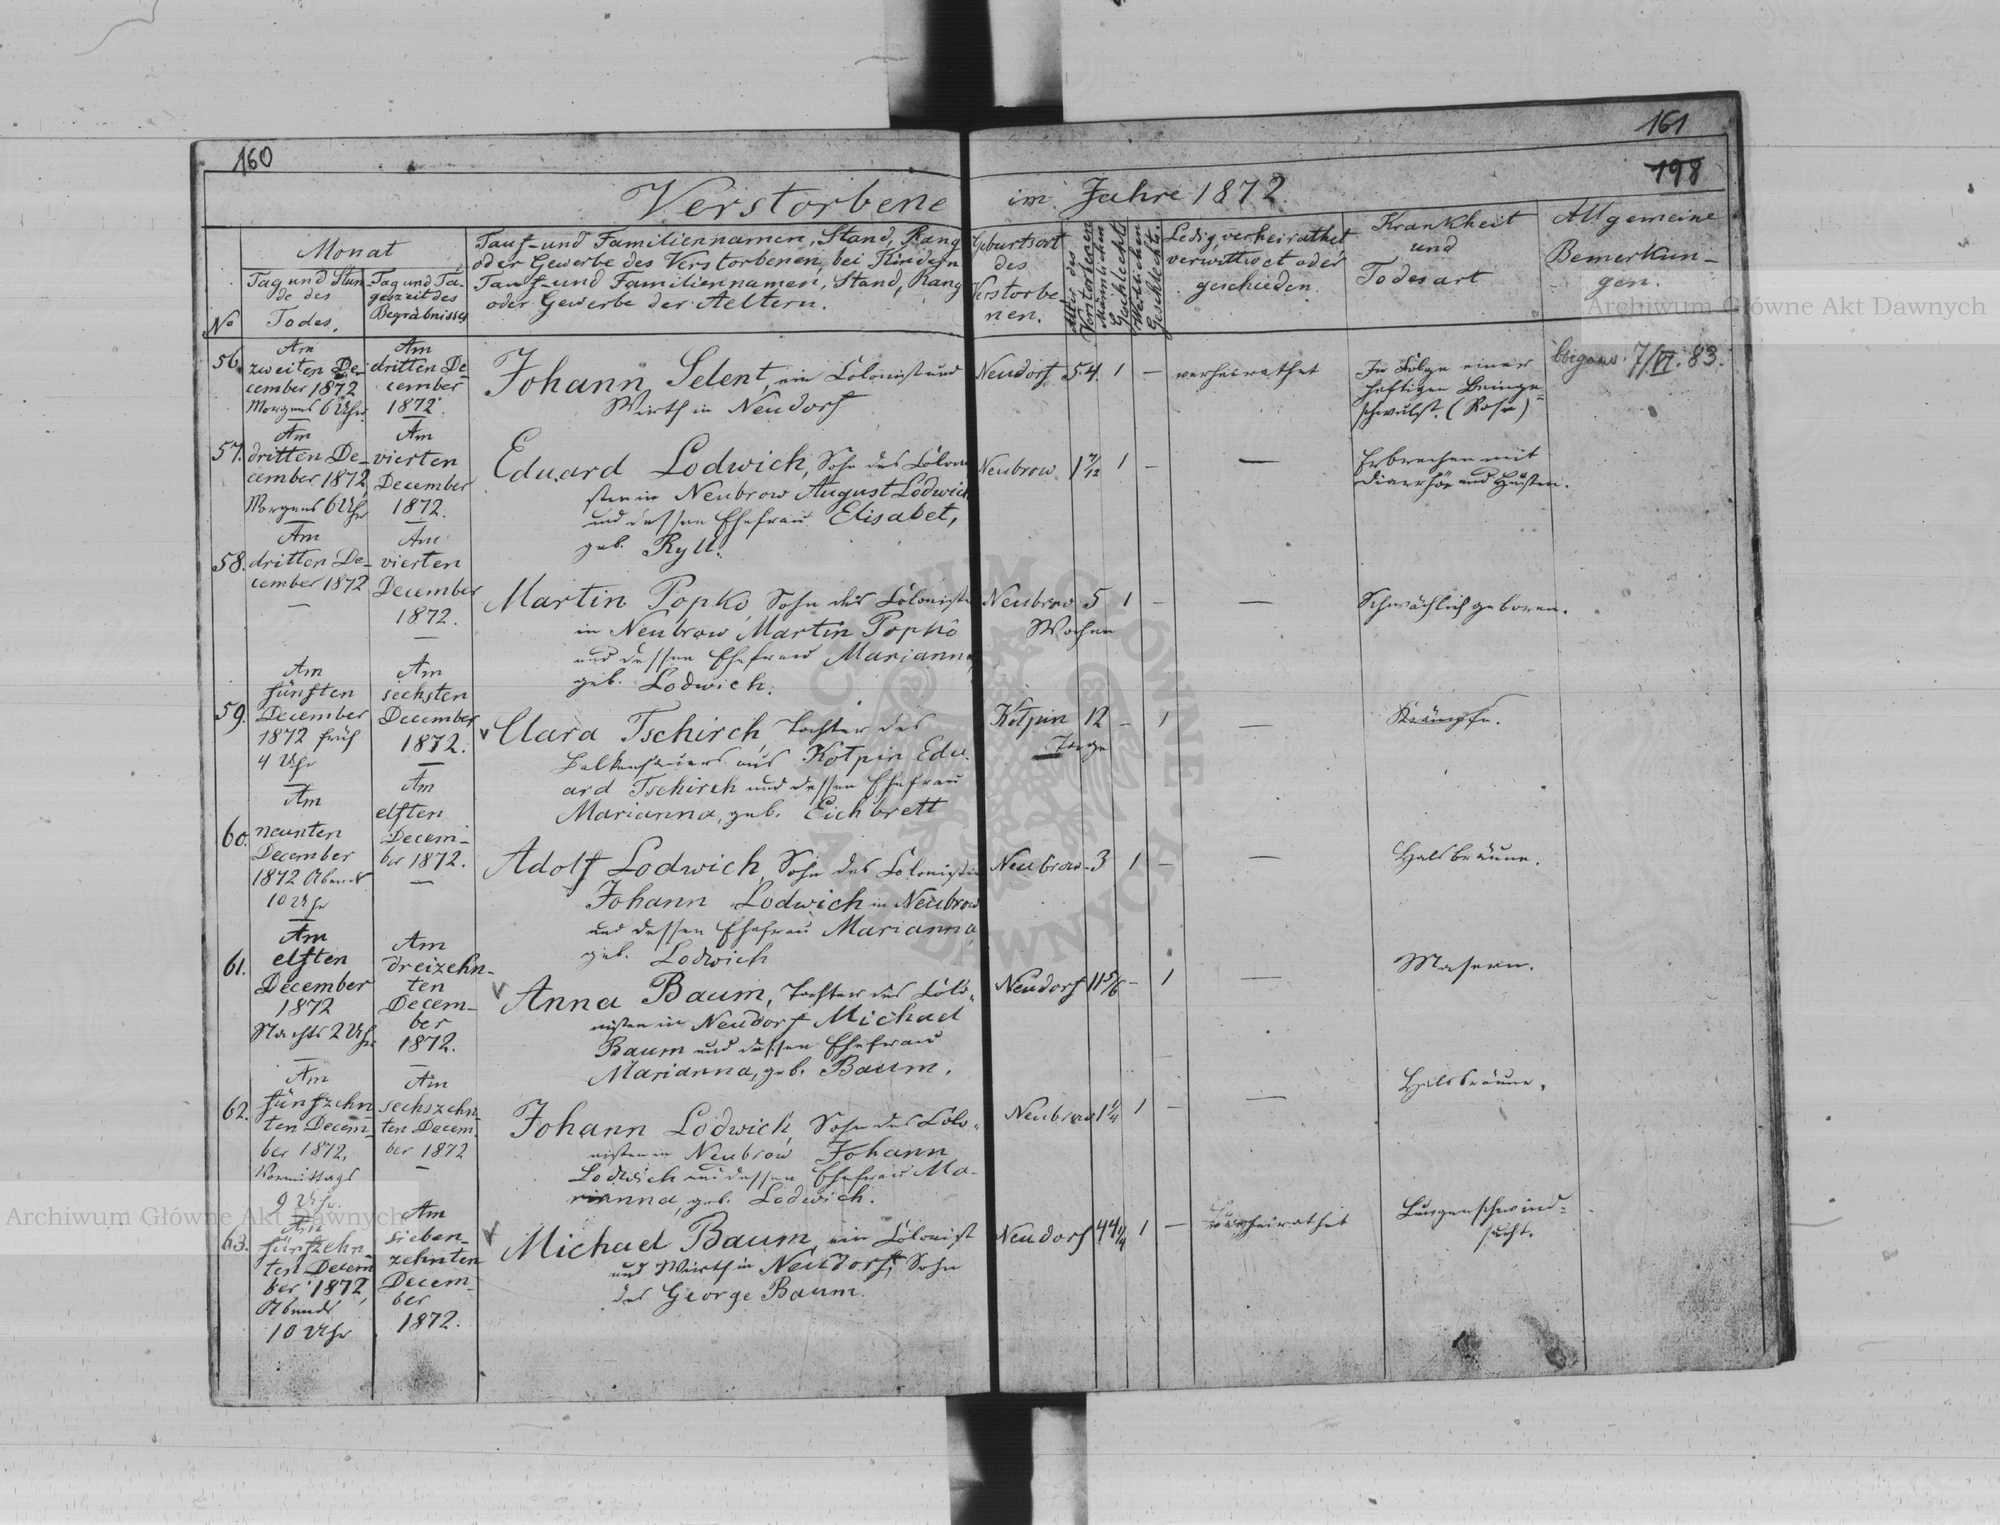 160
161
198
Verstorbene im Jahre 1872.
No
Monat
Tag und Stun-
de des
Todes.
Tag und Ta-
geszeit des
Begräbnisses
Tauf- und Familiennamen, Stand, Rang
oder Gewerbe des Verstorbenen, bei Kindern
Tauf- und Familiennamen, Stand, Rang
oder Gewerbe der Aeltern.
Geburtsort
des
Verstorbe-
nen.
Alter des
Verstorbenen
Männlichen
Geschlechts
Weiblichen
Geschlechts.
Ledig, verheirathet
verwittwet oder
geschieden.
Krankheit
und
Todesart
Allgemeine
Bemerkun-
gen.
56.
Am
zweiten De-
cember 1872
Morgens 6 Uhr
Am
dritten De-
cember
1872.
Johann Selent, ein Colonist und
Wirth in Neudorf
Neudorf 54. 1 — verheirathet
In Folge einer
heftigen Beinge-
schwulst. (Rose)
7/VI. 83.
57.
Am
dritten De-
cember 1872
Morgens 6 Uhr
Am
vierten
December
1872.
Eduard Lodwich, Sohn des Coloni
sten in Neubrow August Lodwich
und dessen Ehefrau Elisabet,
geb. Ryll.
Neubrow 1 7/12 1 — —
Erbrechen mit
Diarrhöe und Husten.
58.
Am
dritten De-
cember 1872
—
Am
vierten
December
1872.
—
Martin Popko, Sohn des Coloniste
in Neubrow Martin Popko
und dessen Ehefrau Marianna,
geb. Lodwich.
Neubrow 5 1 — —
Wochen
Schwächlich geboren.
59.
Am
fünften
December
1872 früh
4 Uhr
Am
sechsten
December
1872.
—
v Clara Tschirch, Tochter des
Balkenhauers aus Kotpin Edu-
ard Tschirch und dessen Ehefrau
Marianna, geb. Eichbrett
Kotpin 12 — 1 —
Tage
Krämpfe.
60.
Am
neunten
December
1872 Abends
10 Uhr
Am
elften
Decem-
ber 1872.
—
Adolf Lodwich, Sohn des Colonisten
Johann Lodwich in Neubrow
und dessen Ehefrau Marianna,
geb. Lodwich
Neubrow 3 1 — —
Halsbräune.
61.
Am
elften
December
1872
Nachts 2 Uhr
Am
dreizehn-
ten
Decem-
ber
1872.
v Anna Baum, Tochter des Colo-
nisten in Neudorf Michael
Baum und dessen Ehefrau
Marianna, geb. Baum.
Neudorf 11 5/6 — 1 —
Masern.
62.
Am
fünfzehn-
ten Decem-
ber 1872.
Vormittags
9 Uhr.
Am
sechszehn-
ten Decem-
ber 1872
—
Johann Lodwich, Sohn des Colo-
nisten in Neubrow Johann
Lodwich und dessen Ehefrau Ma-
rianna, geb. Lodwich.
Neubrow 1 1/4 1 — —
Halsbräune.
63.
Am
fünfzehn-
ten Decem
ber 1872,
Abends
10 Uhr
Am
sieben-
zehnten
Decem-
ber
1872.
v Michael Baum, ein Colonist
und Wirth in Neudorf, Sohn
des George Baum.
Neudorf 44 1/4 1 — verheirathet
Lungenschwind-
sucht.
Archiwum Główne Akt Dawnych
Archiwum Główne Akt Dawnych
ARCHIWUM GŁÓWNE AKT DAWNYCH